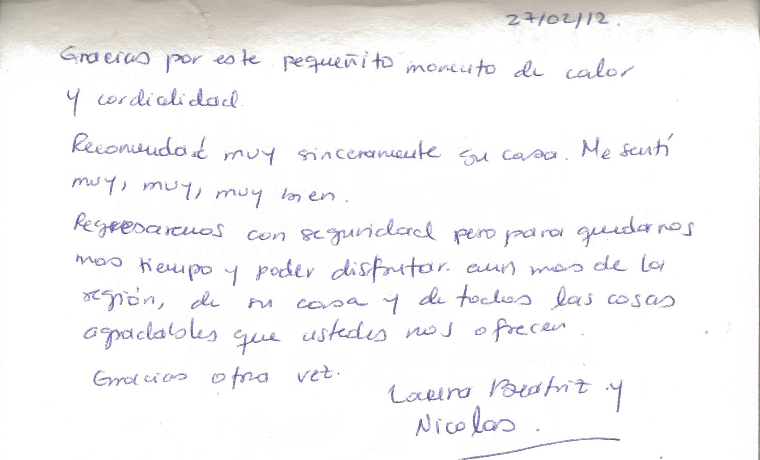 27/02/12.
Gracias por este pequeñito momento de calor
y cordialidad
Recomendaré muy sinceramente su casa. Me sentí
muy, muy, muy bien.
Regresaremos con seguridad pero para quedarnos
mas tiempo y poder disfrutar aun mas de la
región, de su casa y de todas las cosas
agradables que ustedes nos ofrecen.
Gracias otra vez.
Laura Beatriz y
Nicolas.